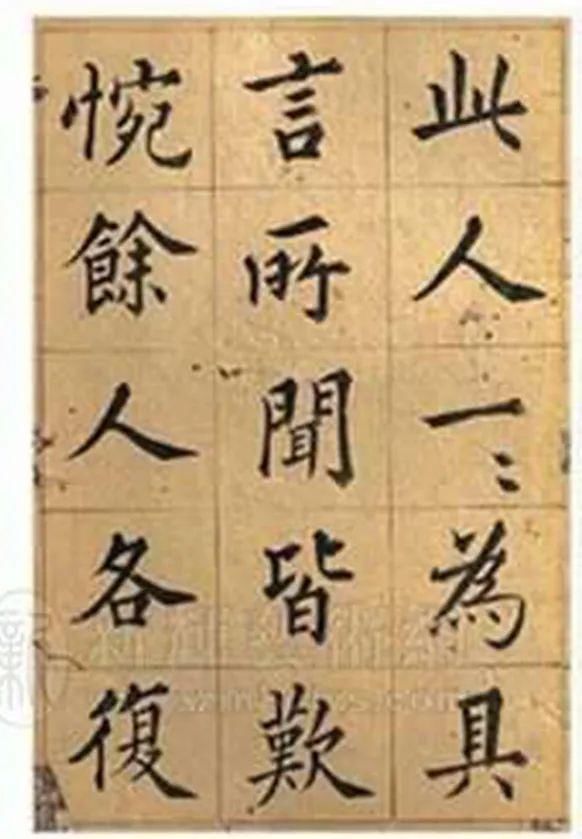 此人一〻為具
言所聞皆歎
惋餘人各復